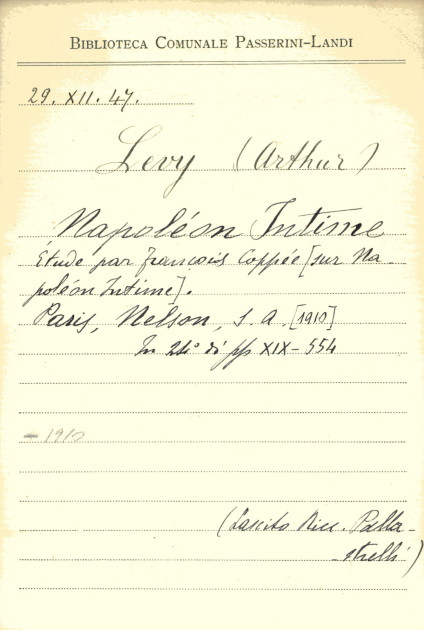 BIBLIOTECA COMUNALE PASSERINI-LANDI
29. XII. 47.
Levy (Arthur)
Napoléon Intime
Étude par François Coppée [sur Na-
poléon Intime].
Paris, Nelson, s. a. [1910]
In 24° di pp XIX-554
- 1910
(Lascito Ricc. Palla-
-strelli)